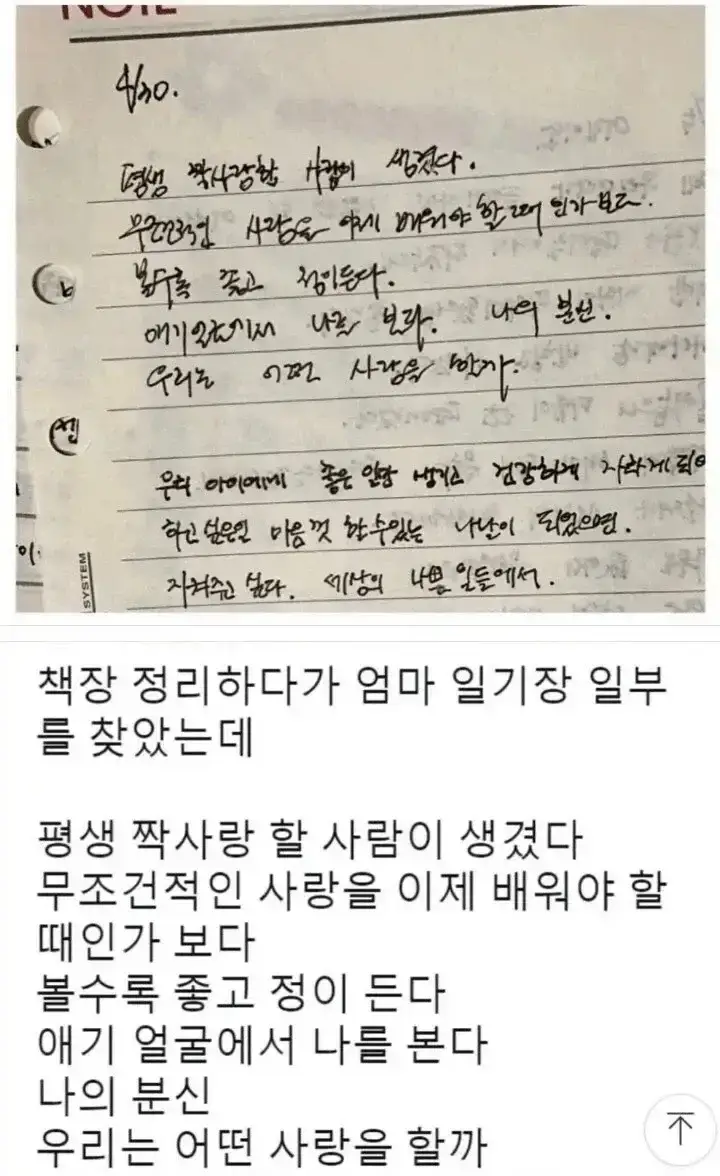 NOTE
4/30.
평생 짝사랑할 사람이 생겼다.
무조건적인 사랑을 이제 배워야 할 때 인가보다.
볼수록 좋고 정이든다.
애기 얼굴에서 나를 본다. 나의 분신.
우리는 어떤 사랑을 할까.
우리 아이에게 좋은 일만 생기고 건강하게 자라게 되어
하고 싶은일 마음껏 할 수 있는 나날이 되었으면.
지켜주고 싶다. 세상의 나쁜 일들에서.
SYSTEM
책장 정리하다가 엄마 일기장 일부
를 찾았는데
평생 짝사랑 할 사람이 생겼다
무조건적인 사랑을 이제 배워야 할
때인가 보다
볼수록 좋고 정이 든다
애기 얼굴에서 나를 본다
나의 분신
우리는 어떤 사랑을 할까